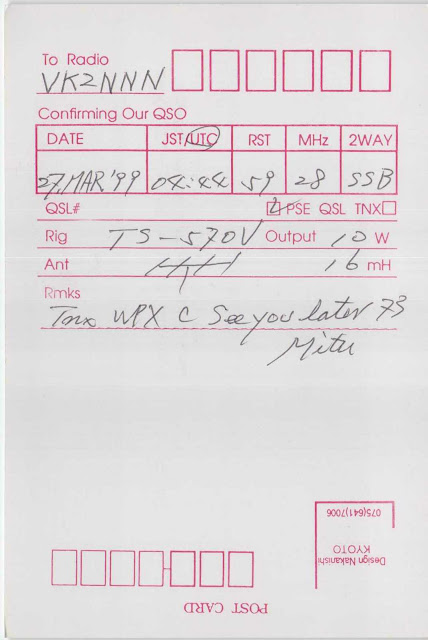 To Radio
VK2NNN
Confirming Our QSO
DATE JST/UTC RST MHz 2WAY
27.MAR'99 04:44 59 28 SSB
QSL# PSE QSL TNX
Rig TS-570V Output 10 W
Ant 16 mH
Rmks
Tnx WPX C See you later 73
Mitu
075(641)7006
Design Nakanishi
KYOTO
POST CARD